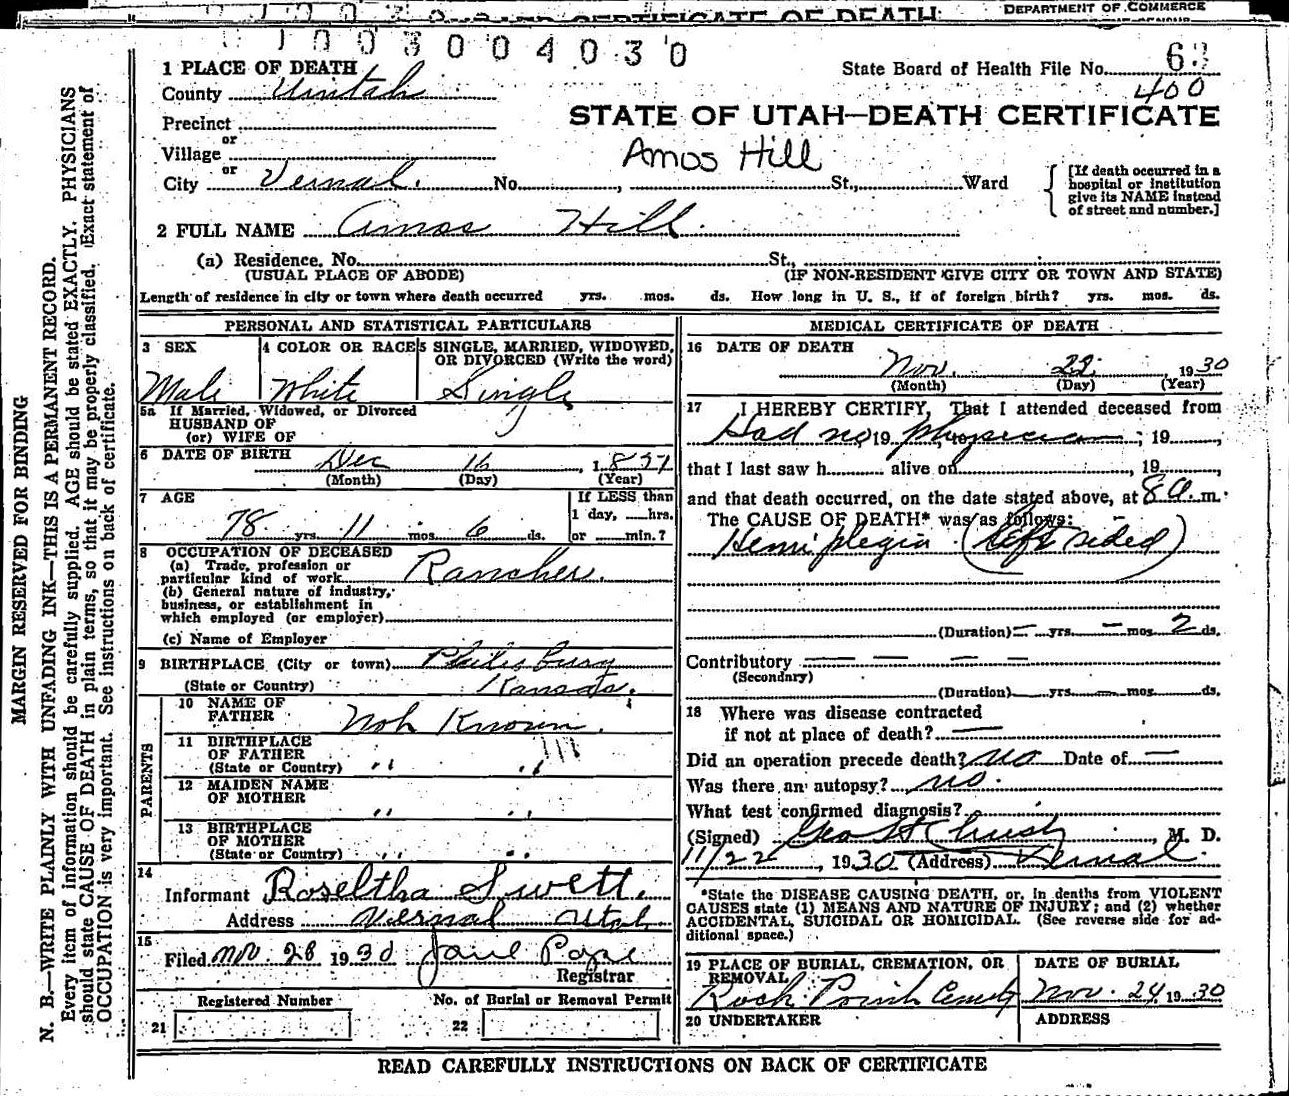 CERTIFICATE OF DEATH
DEPARTMENT OF COMMERCE
1003004030
State Board of Health File No. 63
400
1 PLACE OF DEATH
County Uintah
STATE OF UTAH—DEATH CERTIFICATE
Precinct
or
Village
Amos Hill
or
City Vernal. No. , St., Ward
[If death occurred in a
hospital or institution
give its NAME instead
of street and number.]
2 FULL NAME Amos Hill.
(a) Residence. No. St.,
(USUAL PLACE OF ABODE) (IF NON-RESIDENT GIVE CITY OR TOWN AND STATE)
Length of residence in city or town where death occurred yrs. mos. ds. How long in U. S., if of foreign birth? yrs. mos. ds.
PERSONAL AND STATISTICAL PARTICULARS
3 SEX
Male
4 COLOR OR RACE
White
5 SINGLE, MARRIED, WIDOWED,
OR DIVORCED (Write the word)
Single
5a If Married, Widowed, or Divorced
HUSBAND OF
(or) WIFE OF
6 DATE OF BIRTH Dec 16 , 1
(Month) (Day) (Year)
7 AGE
78 yrs. 11 mos. 6 ds.
If LESS than
1 day, hrs.
or min.?
8 OCCUPATION OF DECEASED
(a) Trade, profession or
particular kind of work Rancher.
(b) General nature of industry,
business, or establishment in
which employed (or employer)
(c) Name of Employer
9 BIRTHPLACE (City or town) Philis burg
(State or Country) Kansas.
PARENTS
10 NAME OF
FATHER Not Known
11 BIRTHPLACE
OF FATHER
(State or Country) " "
12 MAIDEN NAME
OF MOTHER " "
13 BIRTHPLACE
OF MOTHER
(State or Country) " "
14
Informant Roseltha Swett.
Address Vernal Utah
15
Filed Nov. 28 1930
Registrar
Registered Number No. of Burial or Removal Permit
21 22
MEDICAL CERTIFICATE OF DEATH
16 DATE OF DEATH
Nov. 22 , 1930
(Month) (Day) (Year)
17 I HEREBY CERTIFY, That I attended deceased from
Had no 19 physician ; 19 ,
that I last saw h alive on , 19 ,
and that death occurred, on the date stated above, at 8 a m.
The CAUSE OF DEATH* was as follows:
Hemiplegia (left sided)
(Duration) — yrs. — mos. 2 ds.
Contributory — — — —
(Secondary)
(Duration) yrs. mos. ds.
18 Where was disease contracted
if not at place of death? —
Did an operation precede death? No Date of —
Was there an autopsy? no.
What test confirmed diagnosis?
(Signed) Geo H Christy , M. D.
11/22 , 1930 (Address) Vernal.
*State the DISEASE CAUSING DEATH, or, in deaths from VIOLENT
CAUSES state (1) MEANS AND NATURE OF INJURY; and (2) whether
ACCIDENTAL, SUICIDAL OR HOMICIDAL. (See reverse side for ad-
ditional space.)
19 PLACE OF BURIAL, CREMATION, OR
REMOVAL
Rock Point Cemety
DATE OF BURIAL
Nov. 24, 1930
20 UNDERTAKER ADDRESS
READ CAREFULLY INSTRUCTIONS ON BACK OF CERTIFICATE
MARGIN RESERVED FOR BINDING
N. B.—WRITE PLAINLY WITH UNFADING INK—THIS IS A PERMANENT RECORD.
Every item of information should be carefully supplied. AGE should be stated EXACTLY. PHYSICIANS
should state CAUSE OF DEATH in plain terms, so that it may be properly classified. Exact statement of
OCCUPATION is very important. See instructions on back of certificate.